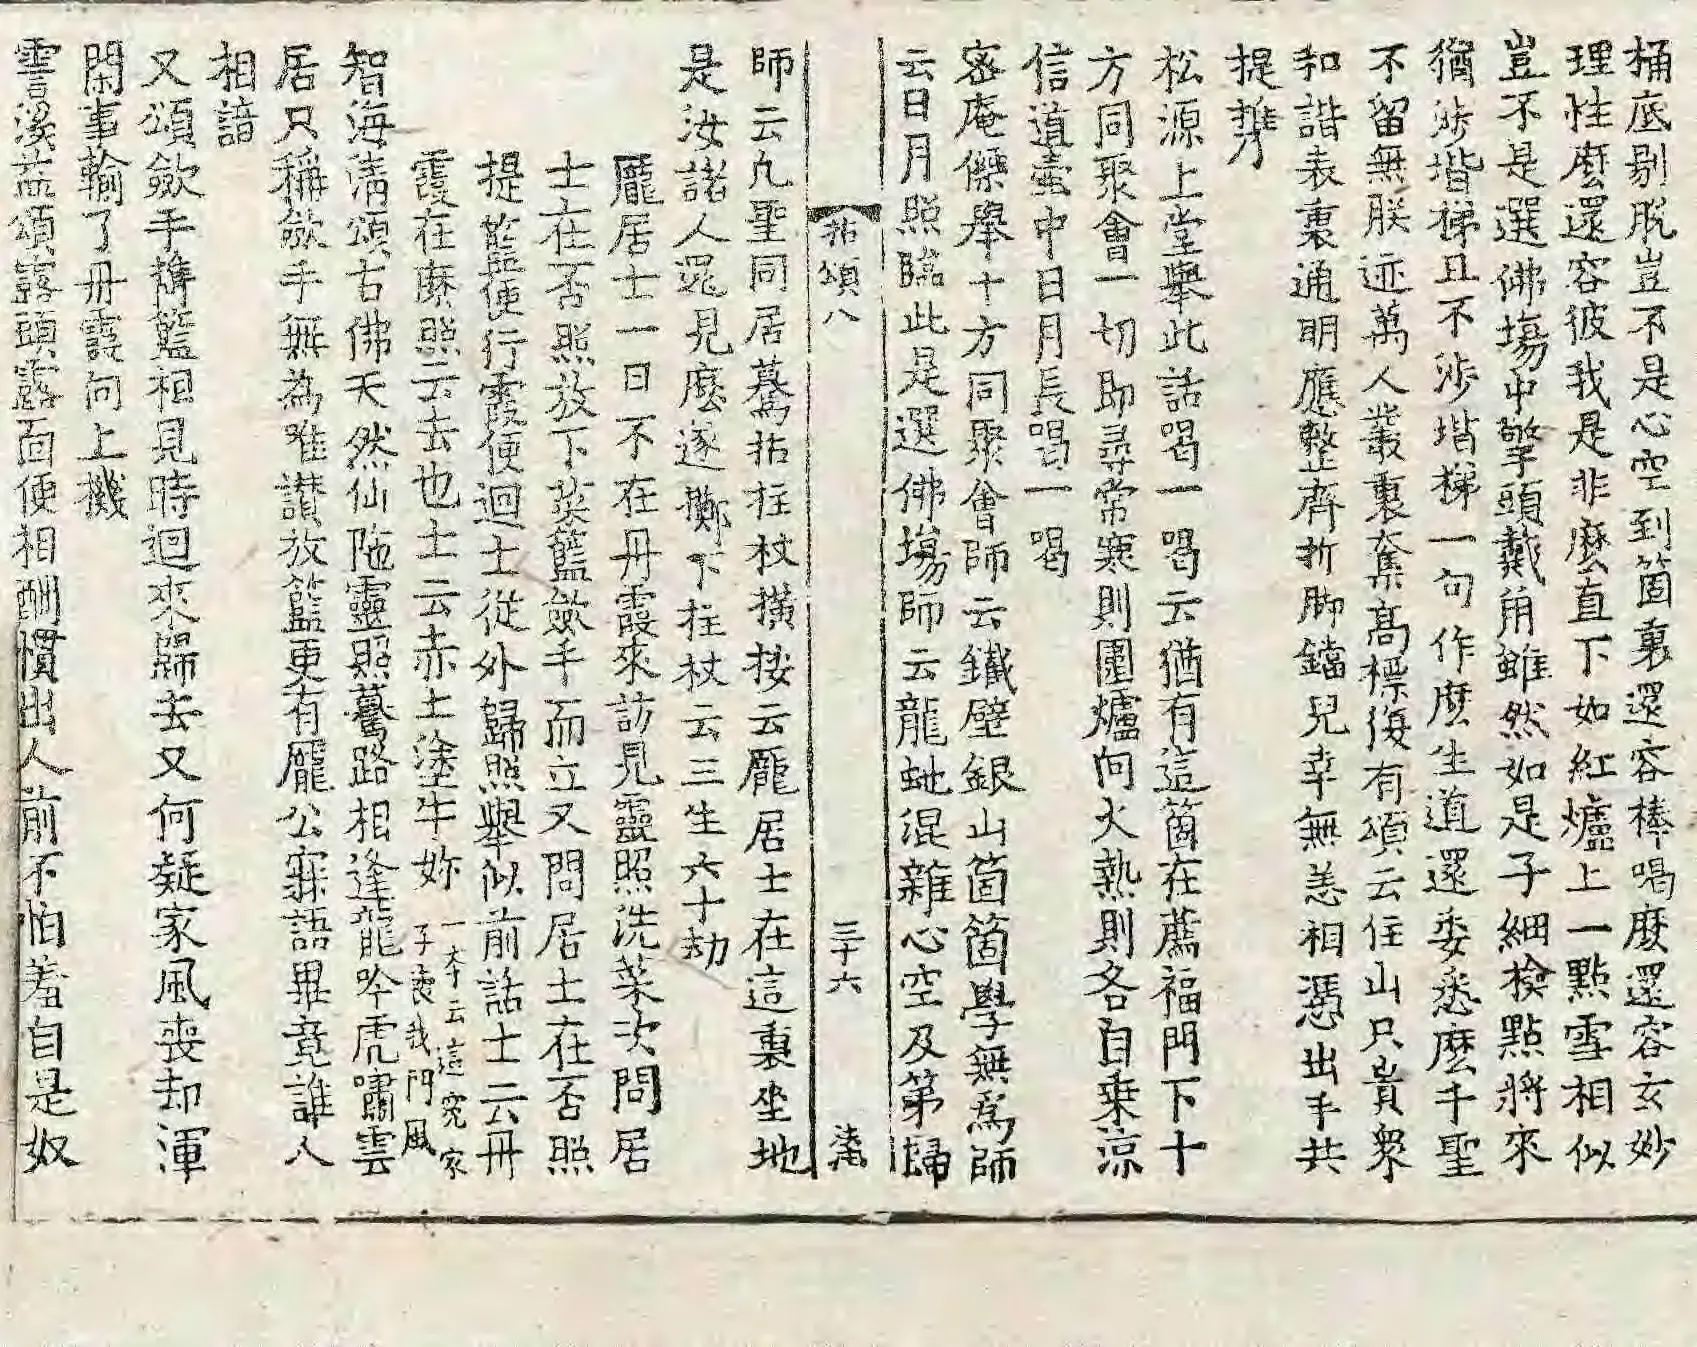 桶底剔脫豈不是心空到箇裏還容棒喝麽還容玄妙
理性麽還容彼我是非麽直下如紅爐上一點雪相似
豈不是選佛場中擎頭戴角雖然如是子細檢點將來
猶涉堦梯且不涉堦梯一句作麽生道還委悉麽千聖
不留無朕迹萬人叢裏奪高標後有頌云住山只貴衆
和諧表裏通明應整齊折脚鐺兒幸無恙相憑出手共
提携
松源上堂擧此話喝一喝云猶有這箇在薦福門下十
方同聚會一切即尋常寒則圍爐向火熱則各自乘涼
信道壺中日月長喝一喝
密庵傑擧十方同聚會師云鐵壁銀山箇箇學無爲師
云日月照臨此是選佛塲師云龍虵混雜心空及第歸
拈頌八　三十六
師云凡聖同居驀拈柱杖橫按云龐居士在這裏坐地
是汝諸人還見麽遂擲下柱杖云三生六十劫
龐居士一日不在丹霞來訪見靈照洗菜次問居
士在否照放下菜籃斂手而立又問居士在否照
提籃便行霞便迴士從外歸照擧似前話士云丹
霞在麽照云去也士云赤土塗牛妳一本云這冤家子喪我門風
智海淸頌古佛天然仙陁靈照驀路相逢龍吟虎嘯雲
居只稱斂手無為唯讃放籃更有龐公寐語畢竟誰人
相諳
又頌斂手携籃相見時迴來歸去又何疑家風喪却渾
閑事輸了丹霞向上機
霅溪益頌露頭露面便相酬慣出人前不怕羞自是奴